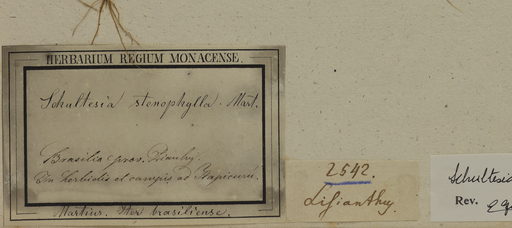 HERBARIUM REGIUM MONACENSE.
Schultesia stenophylla. Mart.
Brasilia prov. Piauhy
In herbidis et campis ad Itapicurú.
Martius. Iter brasiliense.
2542.
Lisianthus.
Schultesia
Rev.